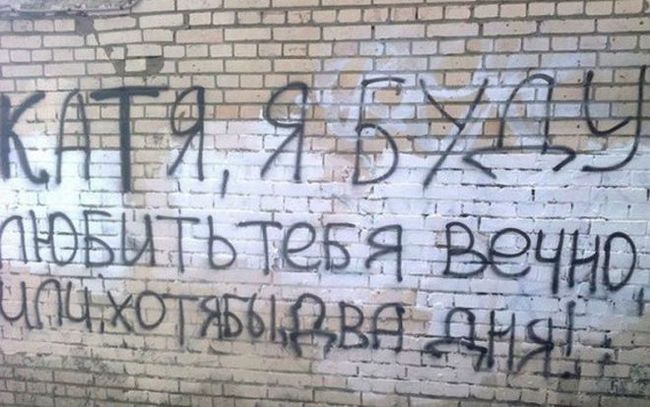 КАТЯ, Я БУДУ
ЛЮБИТЬ ТЕБЯ ВЕЧНО,
ИЛИ, ХОТЯ БЫ, ДВА ДНЯ!